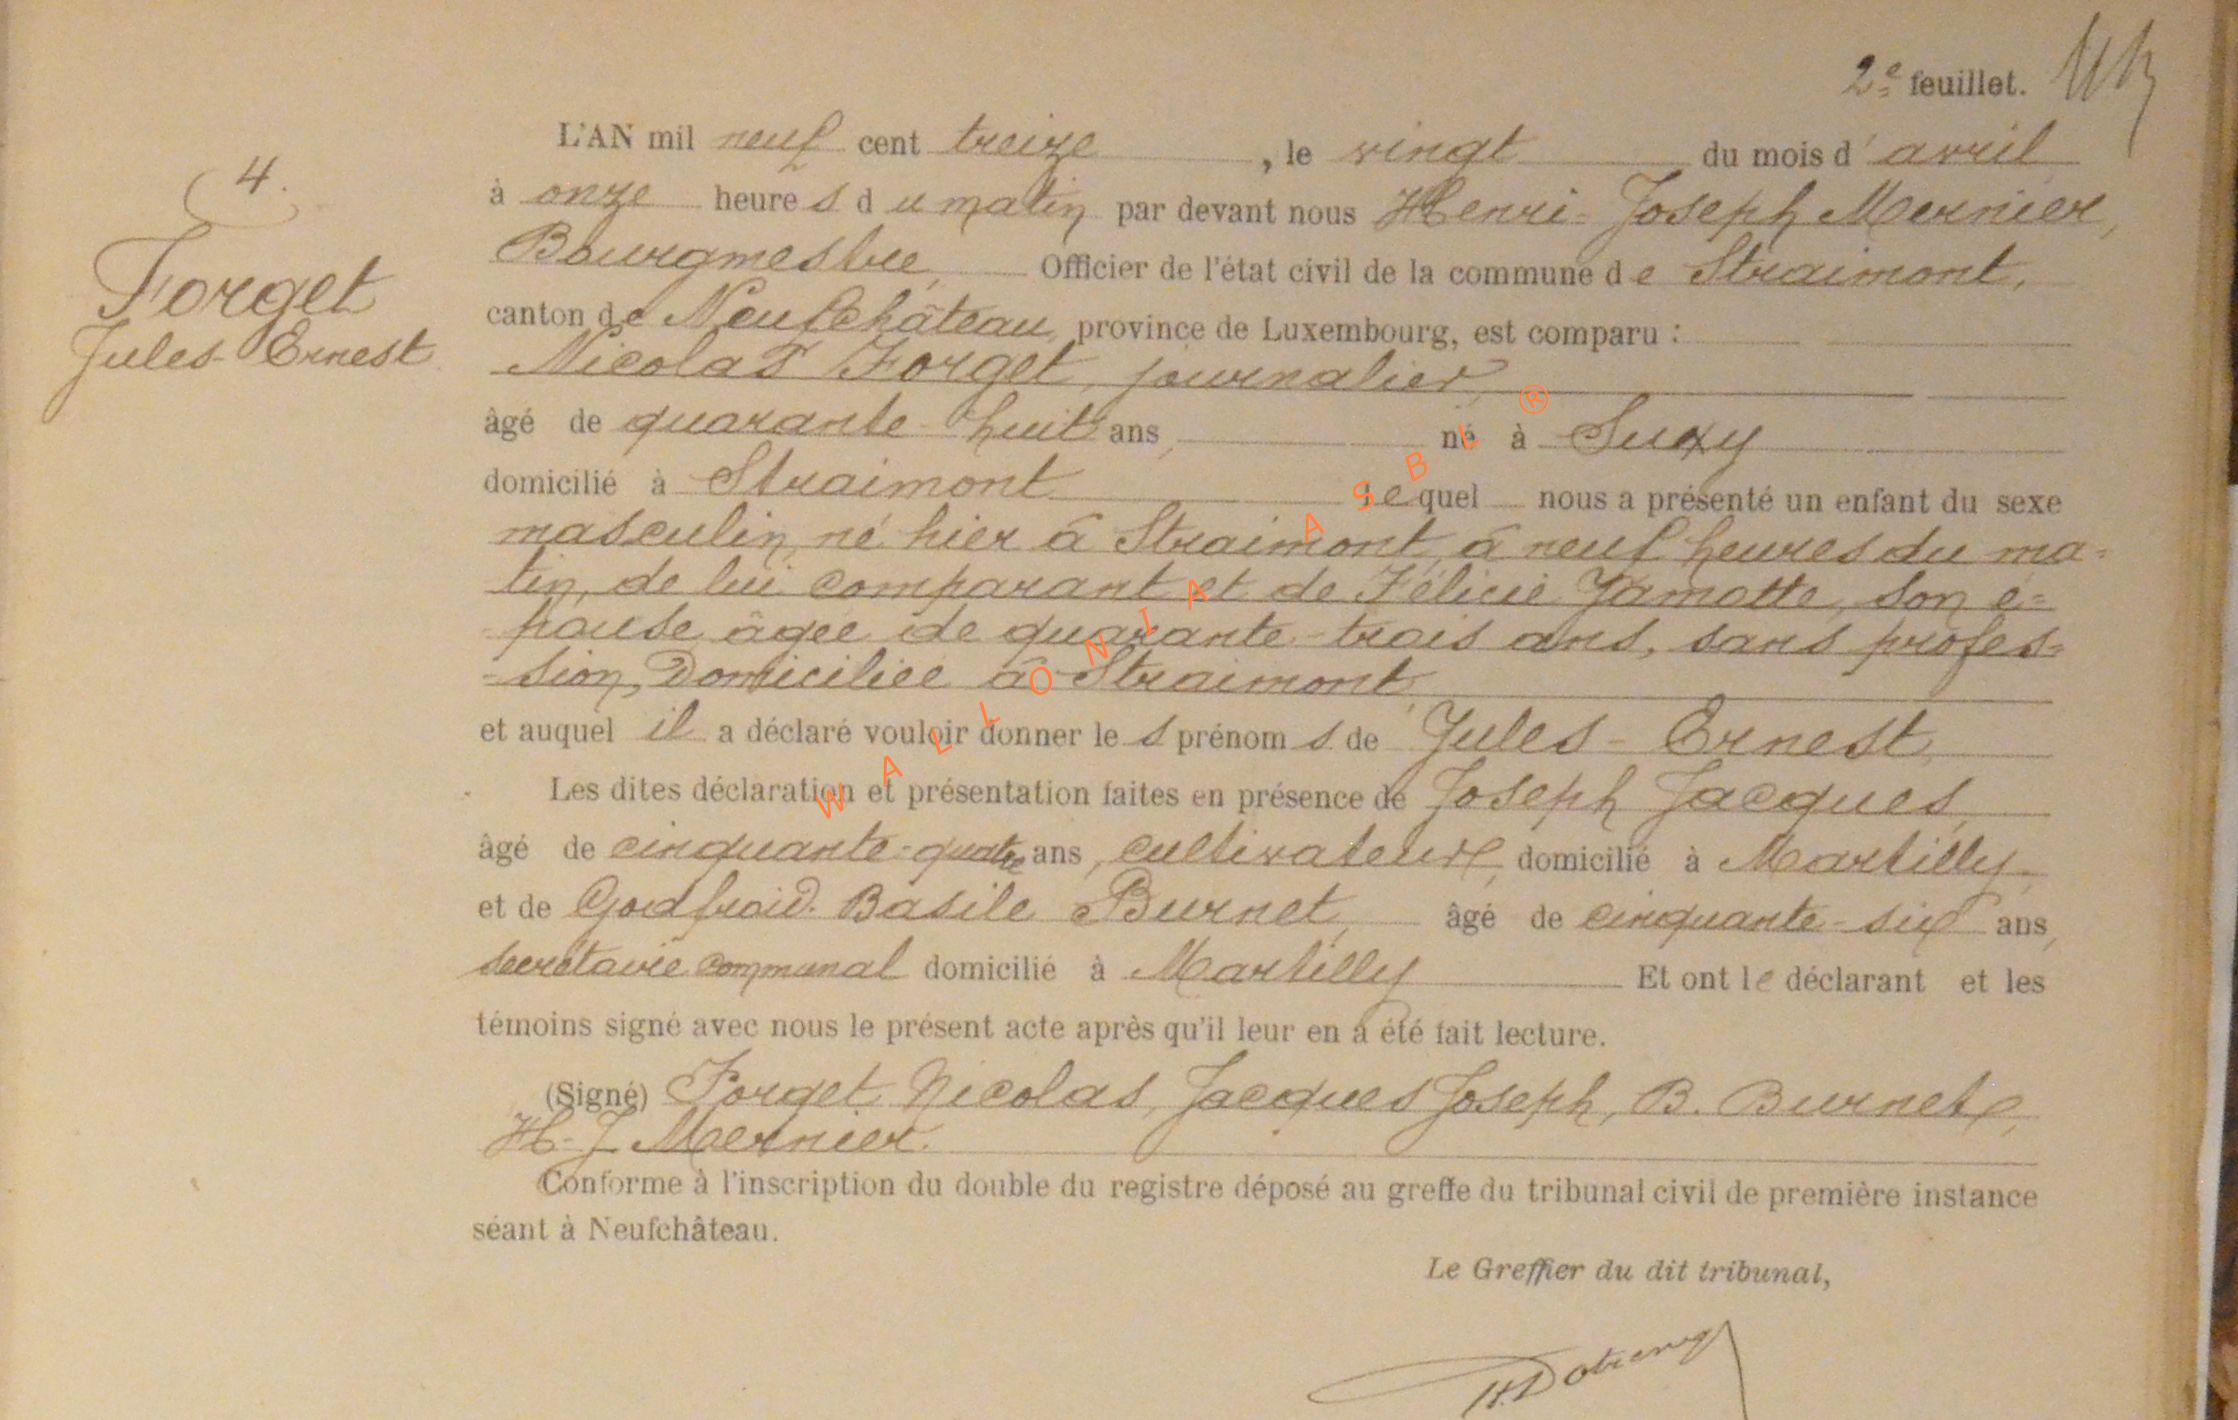 2e feuillet.
4.
Forget
Jules-Ernest
L'AN mil neuf cent treize, le vingt du mois d'avril
à onze heures du matin par devant nous Henri-Joseph Mernier,
Bourgmestre, Officier de l'état civil de la commune de Straimont,
canton de Neufchâteau, province de Luxembourg, est comparu :
Nicolas Forget, journalier,
âgé de quarante-huit ans, né à Suxy
domicilié à Straimont lequel nous a présenté un enfant du sexe
masculin, né hier à Straimont, à neuf heures du ma=
tin, de lui comparant et de Félicie Jamotte, son é=
=pouse âgée de quarante-trois ans, sans profes=
=sion, Domiciliée à Straimont,
et auquel il a déclaré vouloir donner les prénoms de Jules-Ernest,
Les dites déclaration et présentation faites en présence de Joseph Jacques,
âgé de cinquante-quatre ans, cultivateur, domicilié à Martilly,
et de Godfroid. Basile Burnet, âgé de cinquante-six ans,
secrétaire communal domicilié à Martilly Et ont le déclarant et les
témoins signé avec nous le présent acte après qu'il leur en a été fait lecture.
(Signé) Forget Nicolas, Jacques Joseph, B. Burnet,
H-J Mernier.
Conforme à l'inscription du double du registre déposé au greffe du tribunal civil de première instance
séant à Neufchâteau.
Le Greffier du dit tribunal,
WALLONIA ASBL ®